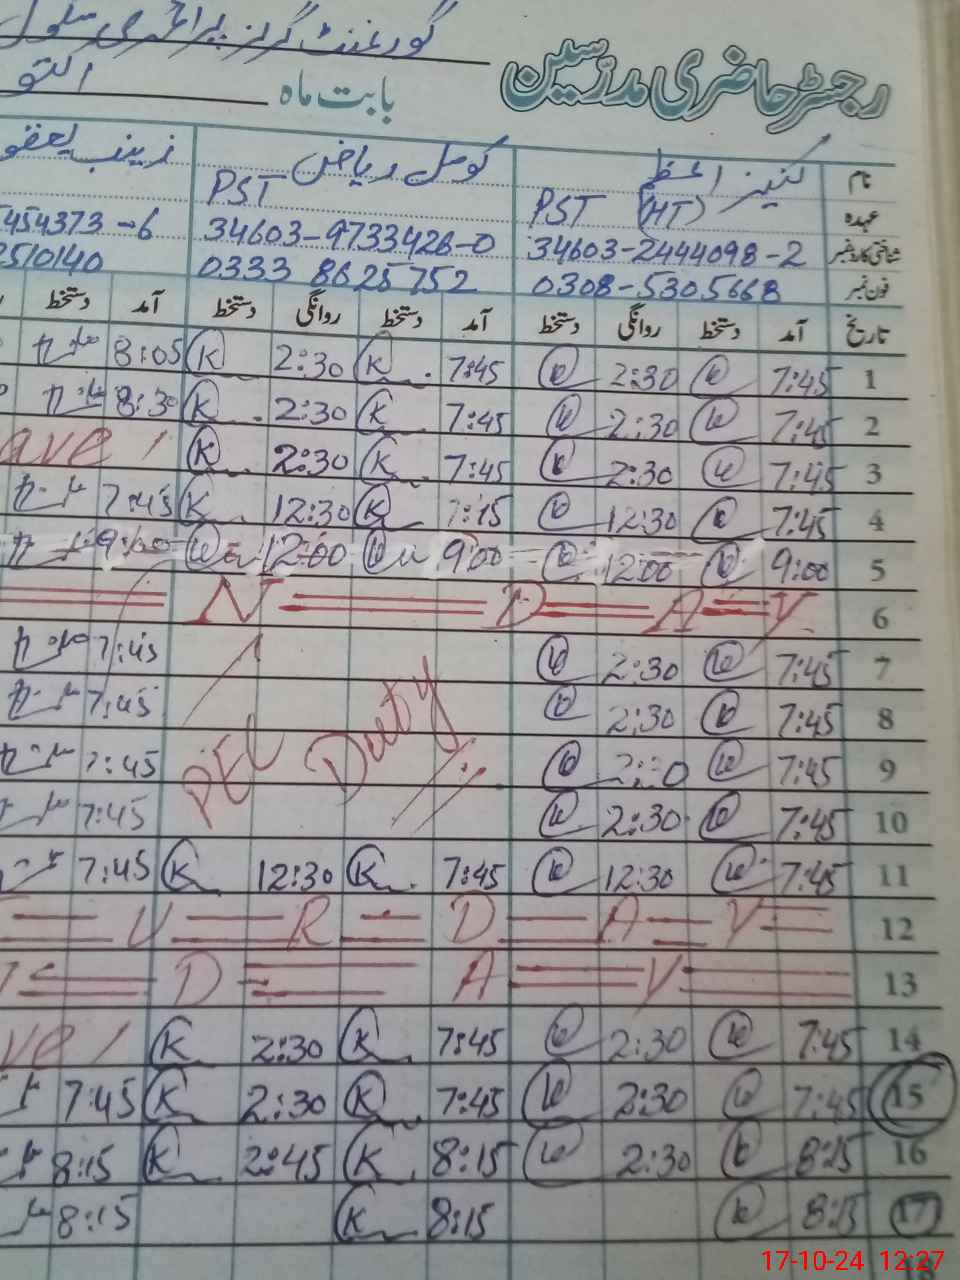 گورنمنٹ گرلز پرائمری سکول
رجسٹر حاضری مدرّسین
بابت ماہ اکتو
نام کنیز اعظم کومل ریاض زینب یعقو
عہدہ PST (HT) PST
شناختی کارڈ نمبر 34603-2444098-2 34603-9733426-0 454373-6
فون نمبر 0308-5305668 0333 8625752 2510140
تاریخ آمد دستخط روانگی دستخط آمد دستخط روانگی دستخط آمد دستخط
1 7:45 2:30 7:45 K 2:30 K 8:05
2 7:45 2:30 7:45 K 2:30 K 8:30
3 7:45 2:30 7:45 K 2:30 K ave
4 7:45 12:30 7:15 K 12:30 K 7:45
5 9:00 12:00 9:00 12:00 9:00
6 N D A Y
7 7:45 2:30 7:45
8 7:45 2:30 7:45
9 7:45 2:30 Duty 7:45
10 7:45 2:30 7:45
11 7:45 12:30 7:45 K 12:30 K 7:45
12 U R D A Y
13 D A Y
14 7:45 2:30 7:45 K 2:30 K ve
15 7:45 2:30 7:45 K 2:30 K 7:45
16 8:15 2:30 8:15 K 2:45 K 8:15
17 8:15 8:15 K 8:15
17-10-24 12:27